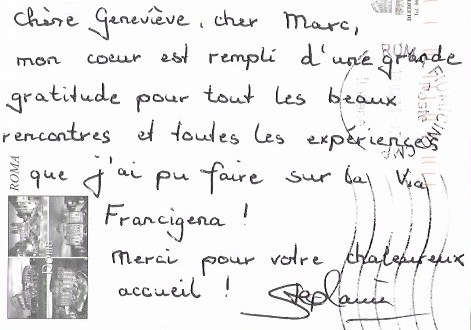 Chère Geneviève, cher Marc,
mon coeur est rempli d'une grande
gratitude pour tout les beaux
rencontres et toutes les expériences
que j'ai pu faire sur la Via
Francigena !
Merci pour votre chaleureux
accueil ! Stephanie
ROMA
ROMA